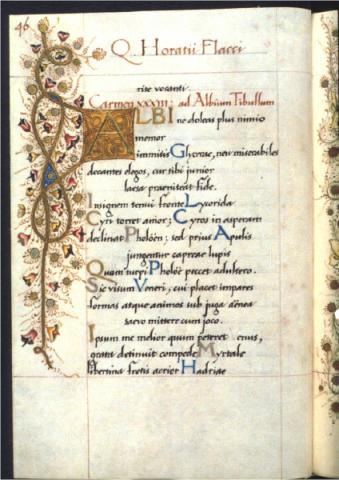 46
Q. Horatii Flacci
rite vocanti
Carmon XXXIII: ad Albium Tibullum
ALBI ne doleas plus nimio
memor
immitis Glycerae, neu miserabiles
decantes elegos, cur tibi junior
laesa praeniteat fide.
Insignem tenui fronte Lycorida
Cyri torret amor; Cyros in asperam
declinat Pholoën; sed prius Apulis
jungentur capreae lupis
Quam turpi Pholoë peccet adultero.
Sic visum Veneri, cui placet impares
formas atque animos sub juga aënea
saevo mittere cum joco.
Ipsum me melior quum peteret Venus,
grata detinuit compede Myrtale
libertina fretis acrior Hadriae